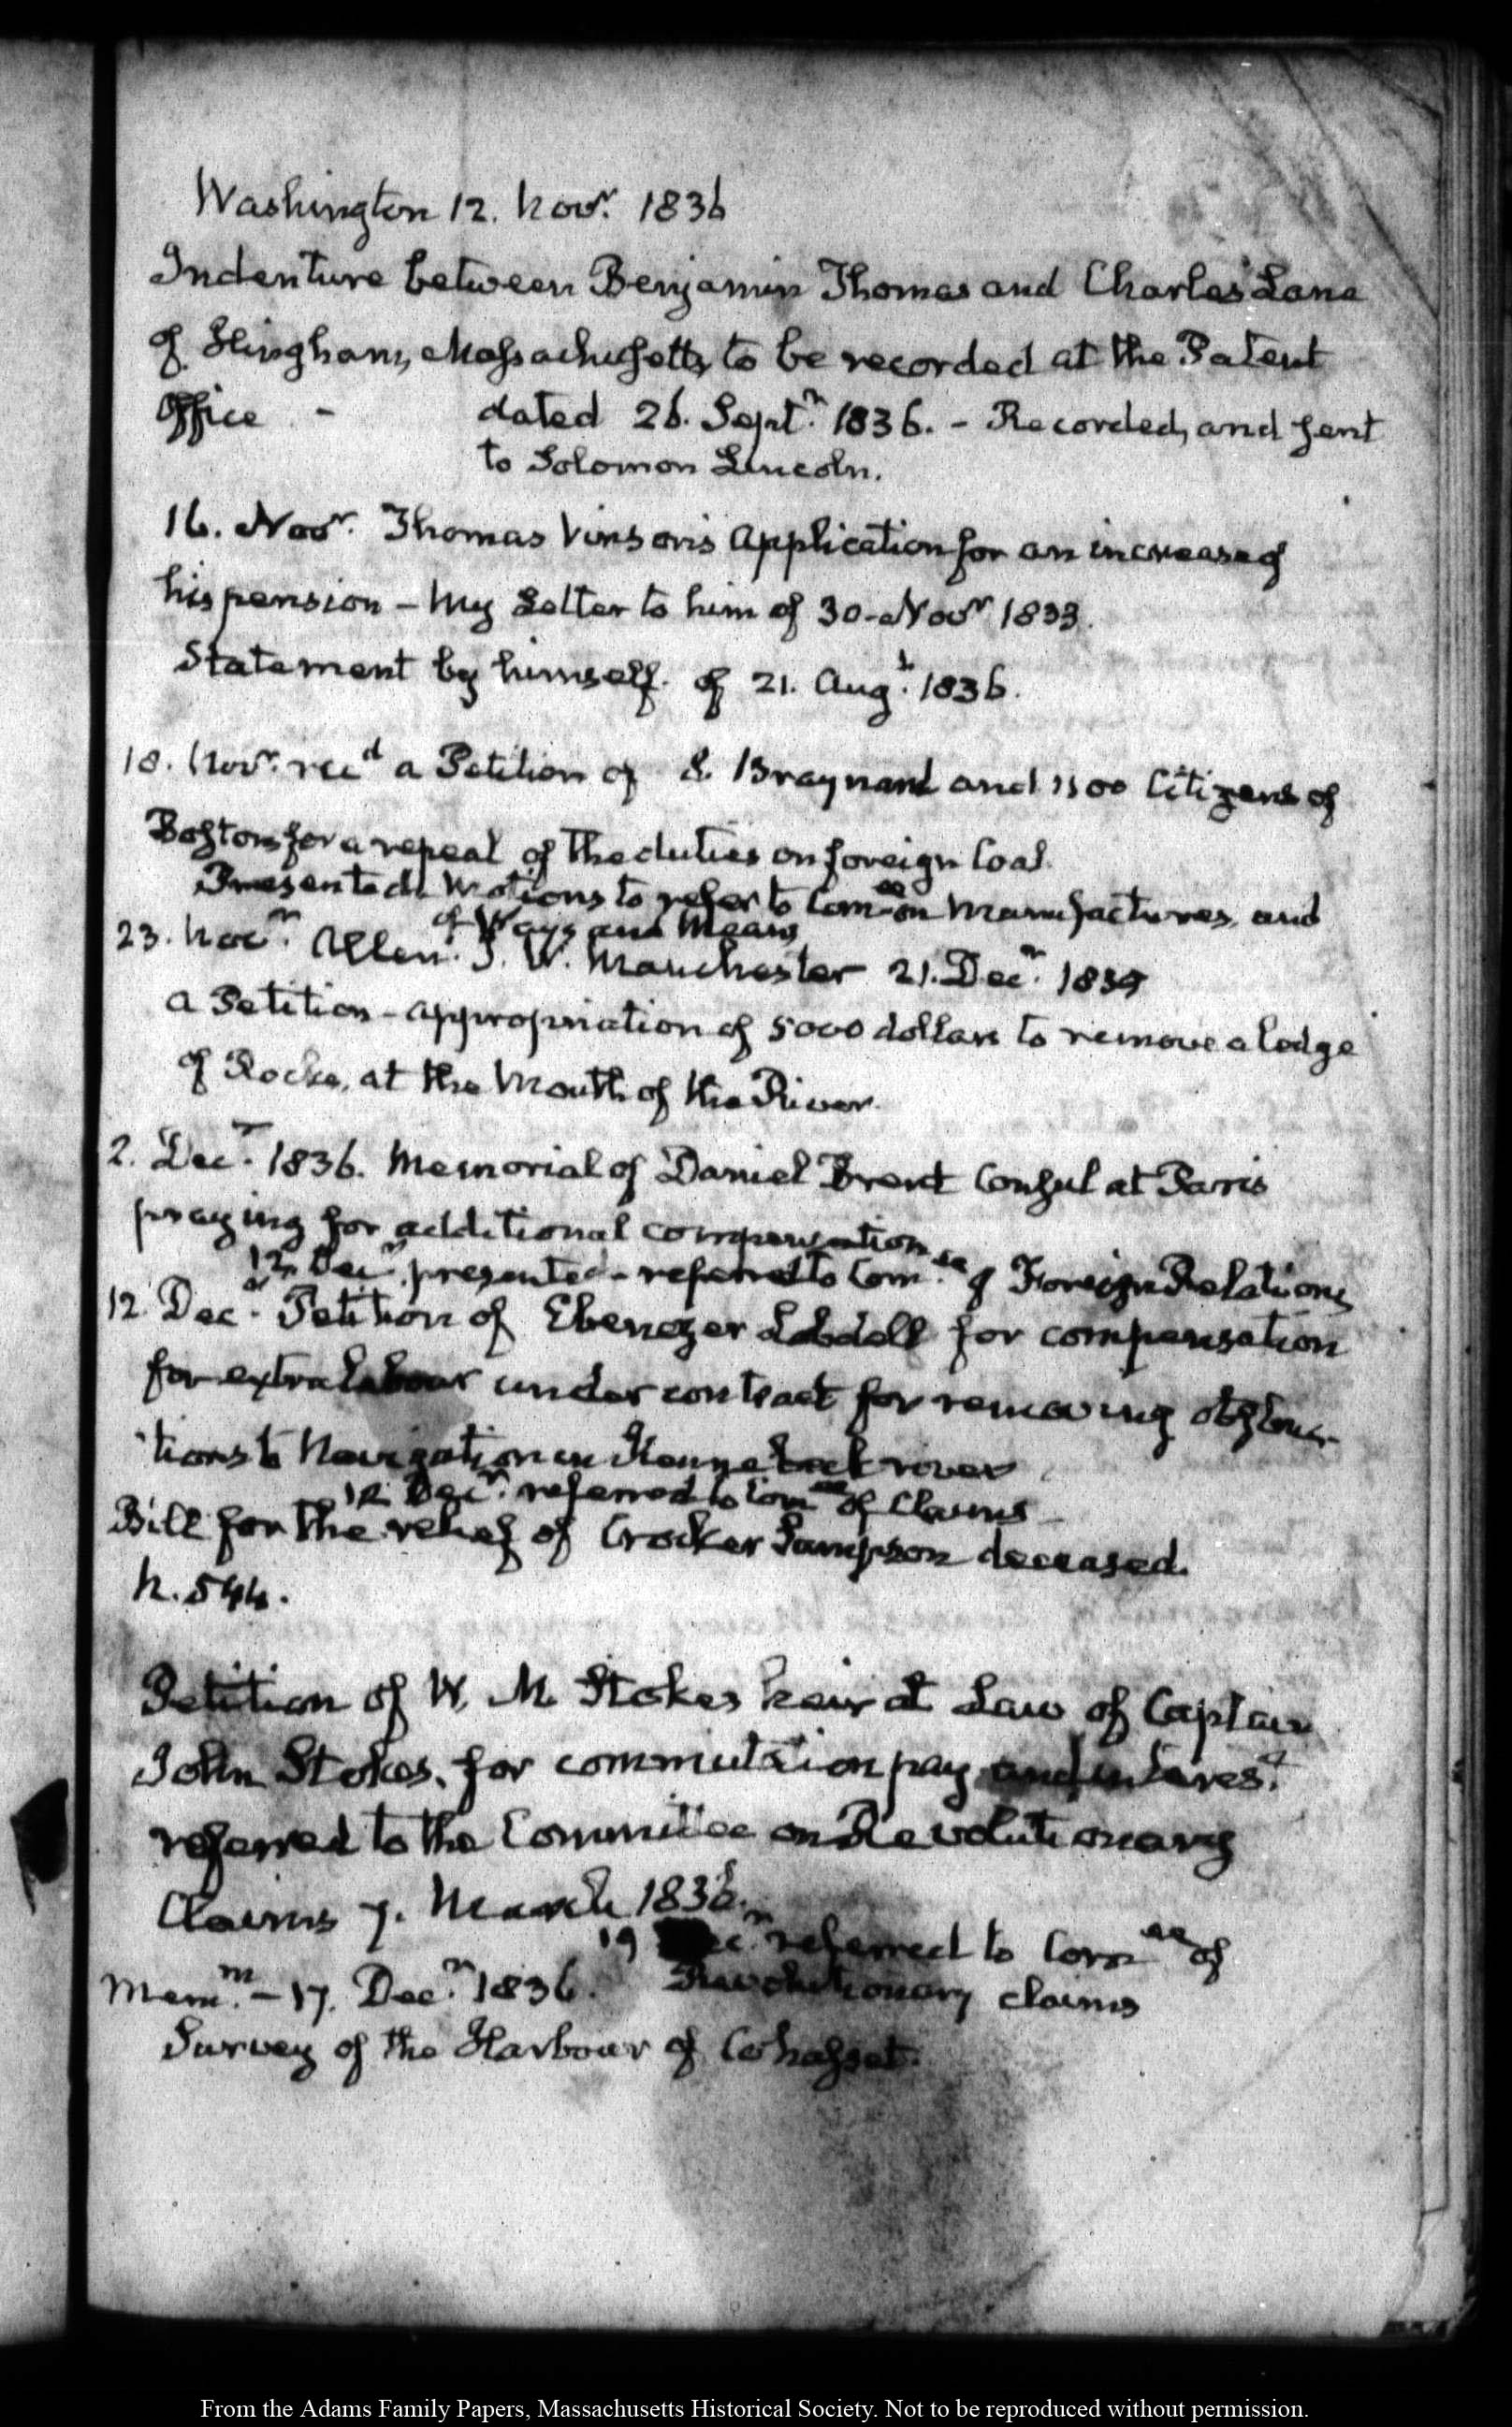 Washington 12. Novr. 1836
Indenture between Benjamin Thomas and Charles Lane
of Hingham, Massachusetts, to be recorded at the Patent
Office - dated 26. Septr. 1836. - Recorded, and sent
to Solomon Lincoln.
16. Novr. Thomas Vinson's application for an increase of
his pension - My Letter to him of 30. Novr 1833.
Statement by himself. of 21. Augt. 1836.
18. Novr. recd a Petition of S. Braynard and 1500 Citizens of
Boston for a repeal of the duties on foreign Coal.
Presented. Motions to refer to Comee on Manufactures, and
of Ways and Means
23. Novr. Allen. J. W. Manchester 21. Decr. 1835
a Petition - appropriation of 5000 dollars to remove a ledge
of Rocks, at the Mouth of the River.
2. Decr. 1836. Memorial of Daniel Brent Consul at Paris
praying for additional compensation
12. Decr. presented - referred to Comee of Foreign Relations
12. Decr. Petition of Ebenezer Lobdell for compensation
for extra labour under contract for removing obstruc-
tions to Navigation in Kennebeck river
12 Decr. referred to Comee of Claims
Bill for the relief of Crocker Sampson deceased.
h. 544.
Petition of W. M. Stokes heir at Law of Captain
John Stokes, for commutation pay and interest.
referred to the Committee on Revolutionary
Claims 7. March 1836.
19 Decr. referred to Comee of
Memm. - 17. Decr. 1836. Revolutionary claims
Survey of the Harbour of Cohasset.
From the Adams Family Papers, Massachusetts Historical Society. Not to be reproduced without permission.